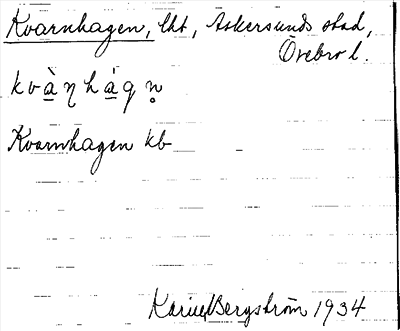 Kvarnhagen, lht, Askersunds stad,
Örebro l.
kvàṇhágn̥
Kvarnhagen kb
Karin Bergström 1934